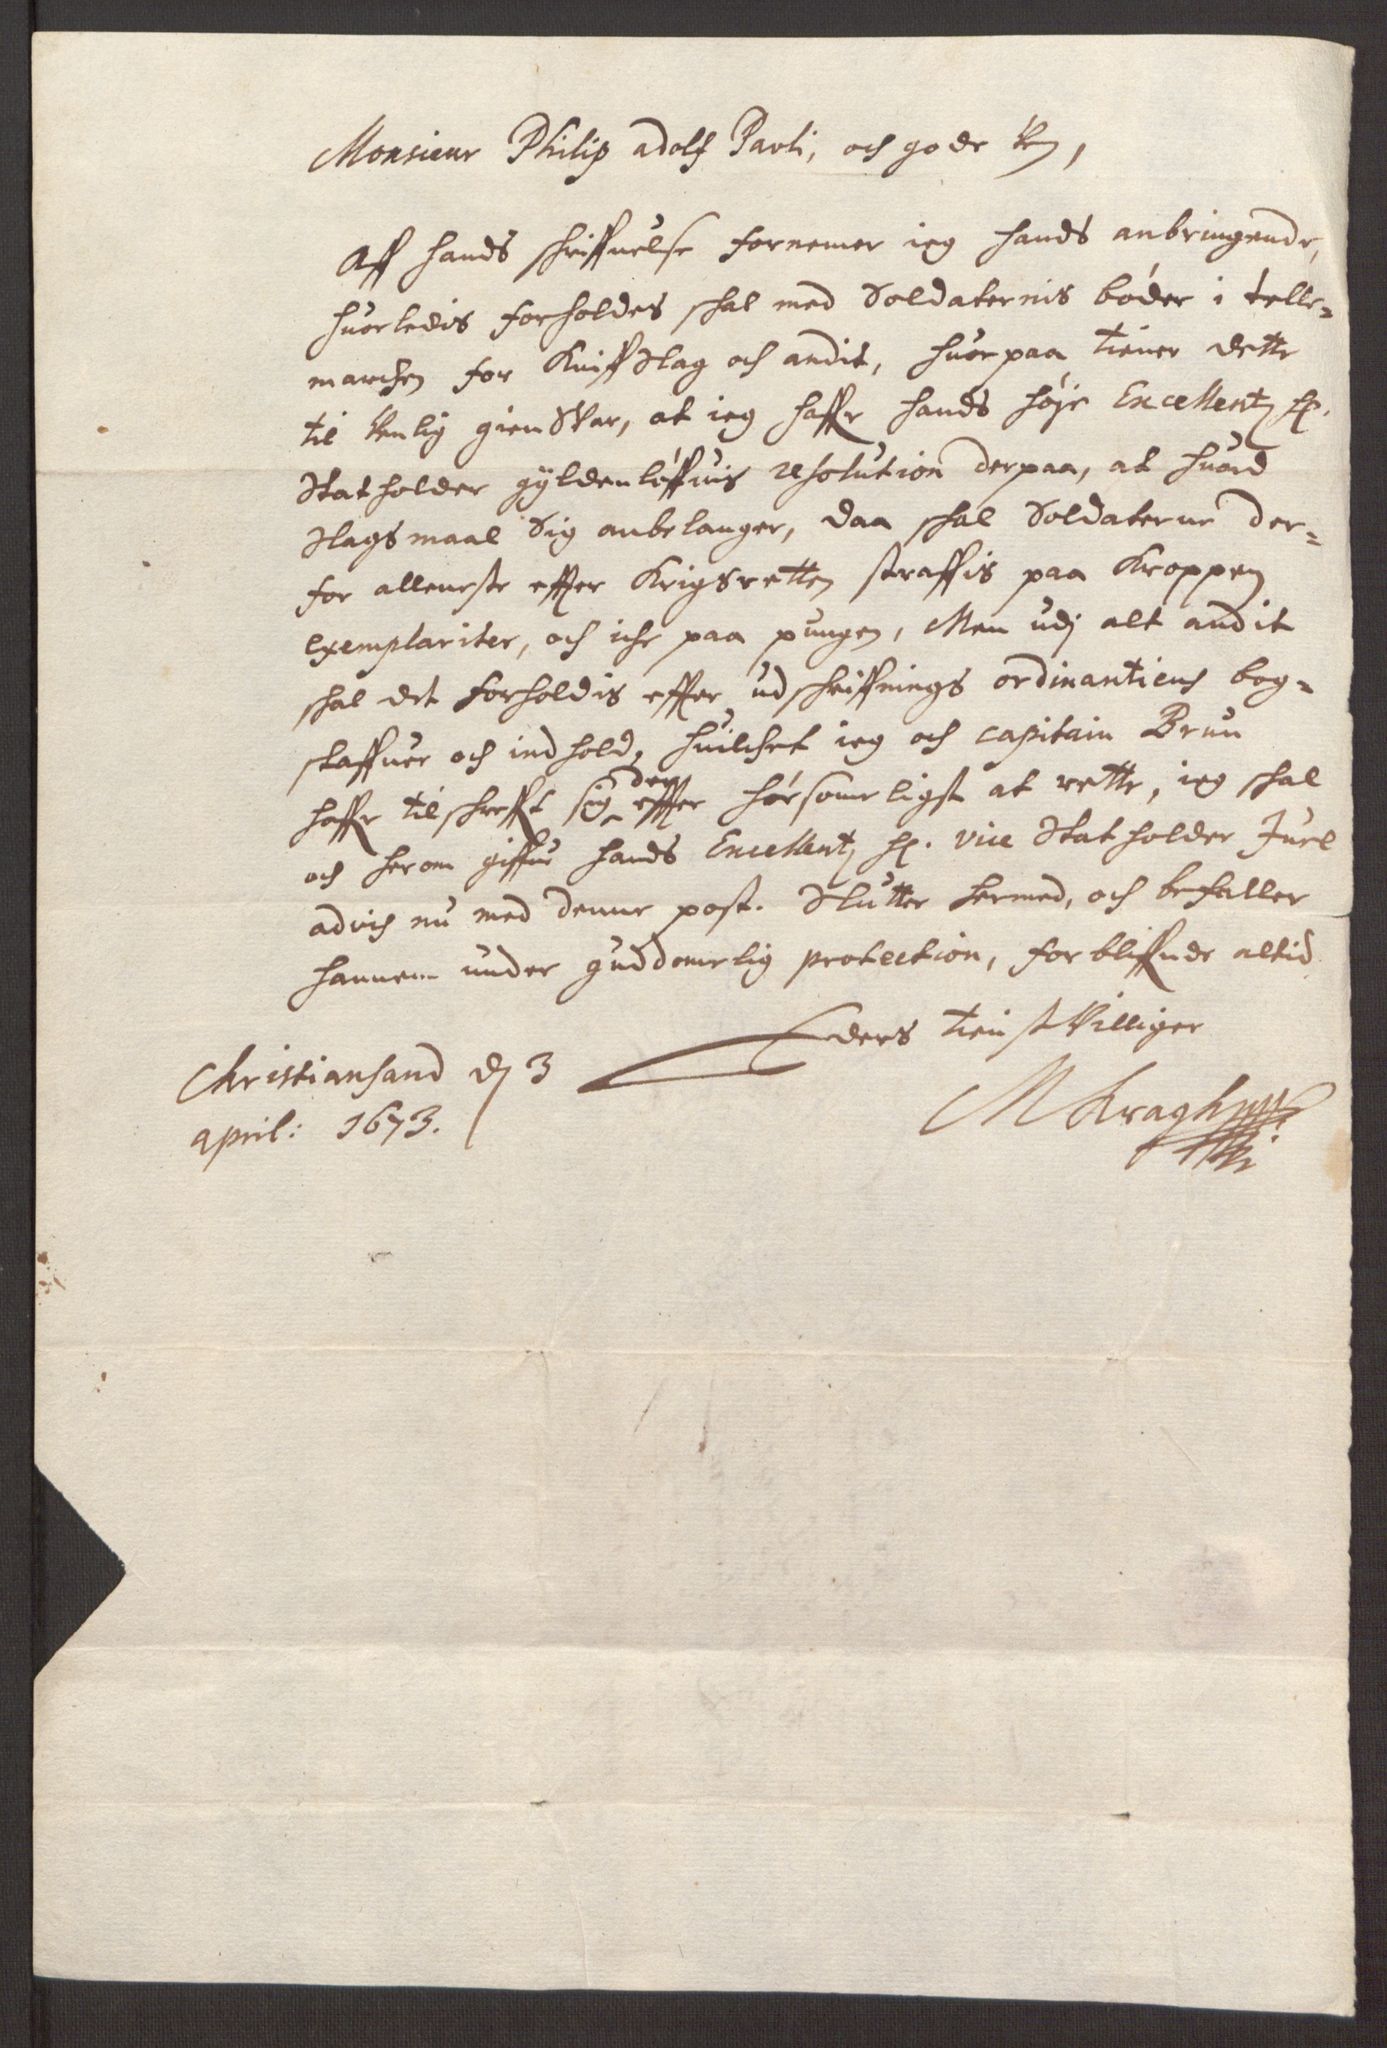 Monsieur Philip adolf Pavli, och gode Ven,
Aff hands schriffuelse fornemer ieg hands anbringende,
huorledis forholdes schal med Soldaternis bøder i telle=
marchen for Kniff Slag och andit, huorpaa tiener dette
til Venlig gienSvar, at ieg haffr hands høje Excellentz H.
Statholder gyldenløffuis resolution derpaa, at huad
Slagsmaal Sig anbelanger, daa schal Soldaterne der=
for alleneste effter Krigsretten straffis paa Kroppen
exemplariter, och iche paa pungen, Men udj alt andit
schal det forholdis effter udschriffnings ordinantiens bog=
staffuer och indhold, huilchet ieg och capitain Brun
haffr tilschrefft sig der effter hørsommeligst at rette, ieg schal
och herom giffue hands Excellentz H. vice Statholder Juel
advis nu med denne post. Slutter hermed, och befaller
hannem under guddommelig protection, forbliffnde altid
Eders tienstVilliger
Christiansand dj 3
april: 1673.
M Kragh